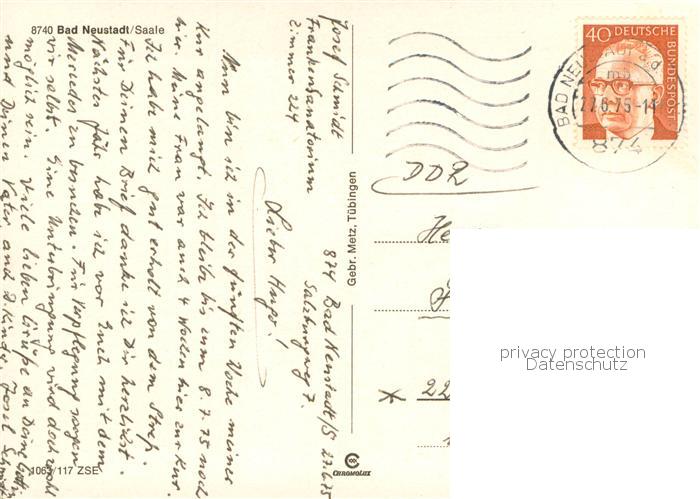 8740 Bad Neustadt/Saale
Josef Schmidt
Frankensanatorium
Zimmer 224
874 Bad Neustadt/S 27.6.75
Salzburgweg 7.
Lieber Hugo!
Nun bin ich in der fünften Woche meiner
Kur angelangt. Ich bleibe bis zum 8.7.75 noch
hier. Meine Frau war auch 4 Wochen hier zur Kur.
Ich habe mich gut erholt von dem Streß.
Für Deinen Brief danke ich Dir herzlichst.
Nächstes Jahr habe ich vor Euch mit dem
Mercedes zu besuchen. Für Verpflegung sorgen
wir selbst. Eine Unterbringung wird doch wohl
möglich sein. Viele lieben Grüße an Deine
und Deinen Vater und d. Kinder. Josef Schmidt
1063/117 ZSE
Gebr. Metz, Tübingen
CHROMOLUX
40 DEUTSCHE
BUNDESPOST
BAD NEUSTADT a.d.
27.6.75-14
874
DDR
He
* 22
privacy protection
Datenschutz